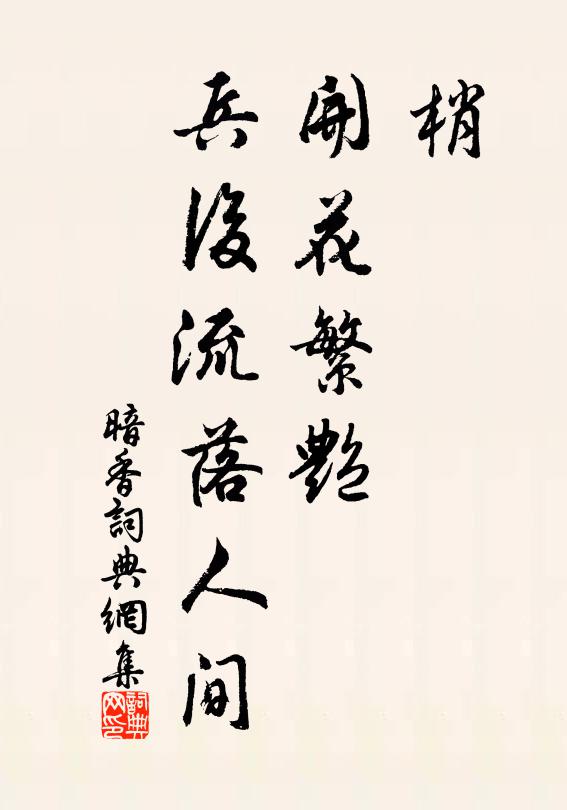 梢
開花繁艷
兵後流落人间
暗香詞典網集
詞典网印